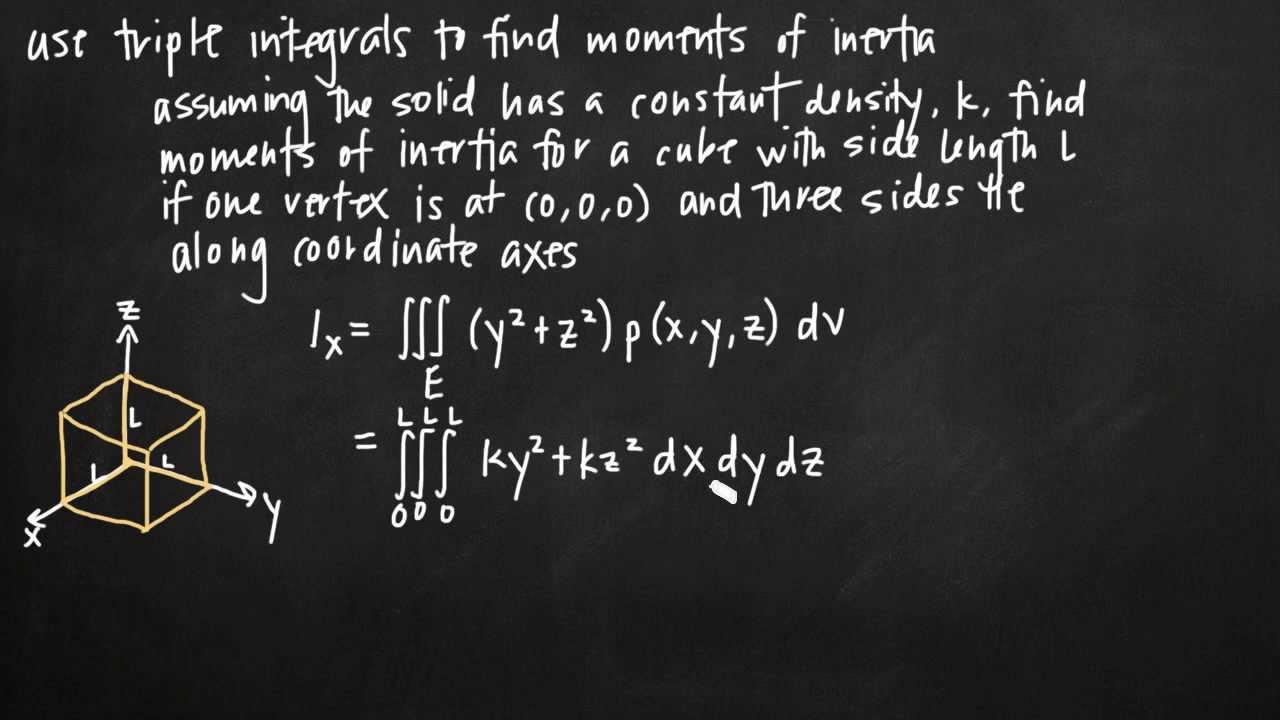 use triple integrals to find moments of inertia
assuming the solid has a constant density, k, find
moments of inertia for a cube with side length L
if one vertex is at (0,0,0) and three sides lie
along coordinate axes
z
L
L
L
x
y
Iₓ = ∭ (y² + z²) p(x,y,z) dv
E
L L L
= ∫∫∫ ky² + kz² dx dy dz
0 0 0